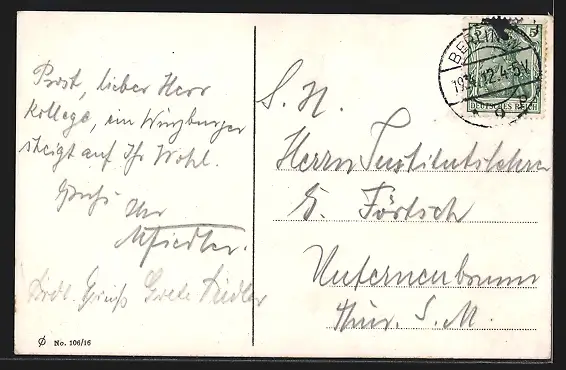 Prost, lieber Herr
Kollege, ein Würzburger
steigt auf Ihr Wohl.
Gruß
Ihr
M Fiedler.
Grete Fiedler
No. 106/16
S. H.
Herrn Institutslehrer
G. Förtsch
Unterneubrunn
Thür. S. M.
BERLIN
4-5 V
5
DEUTSCHES REICH